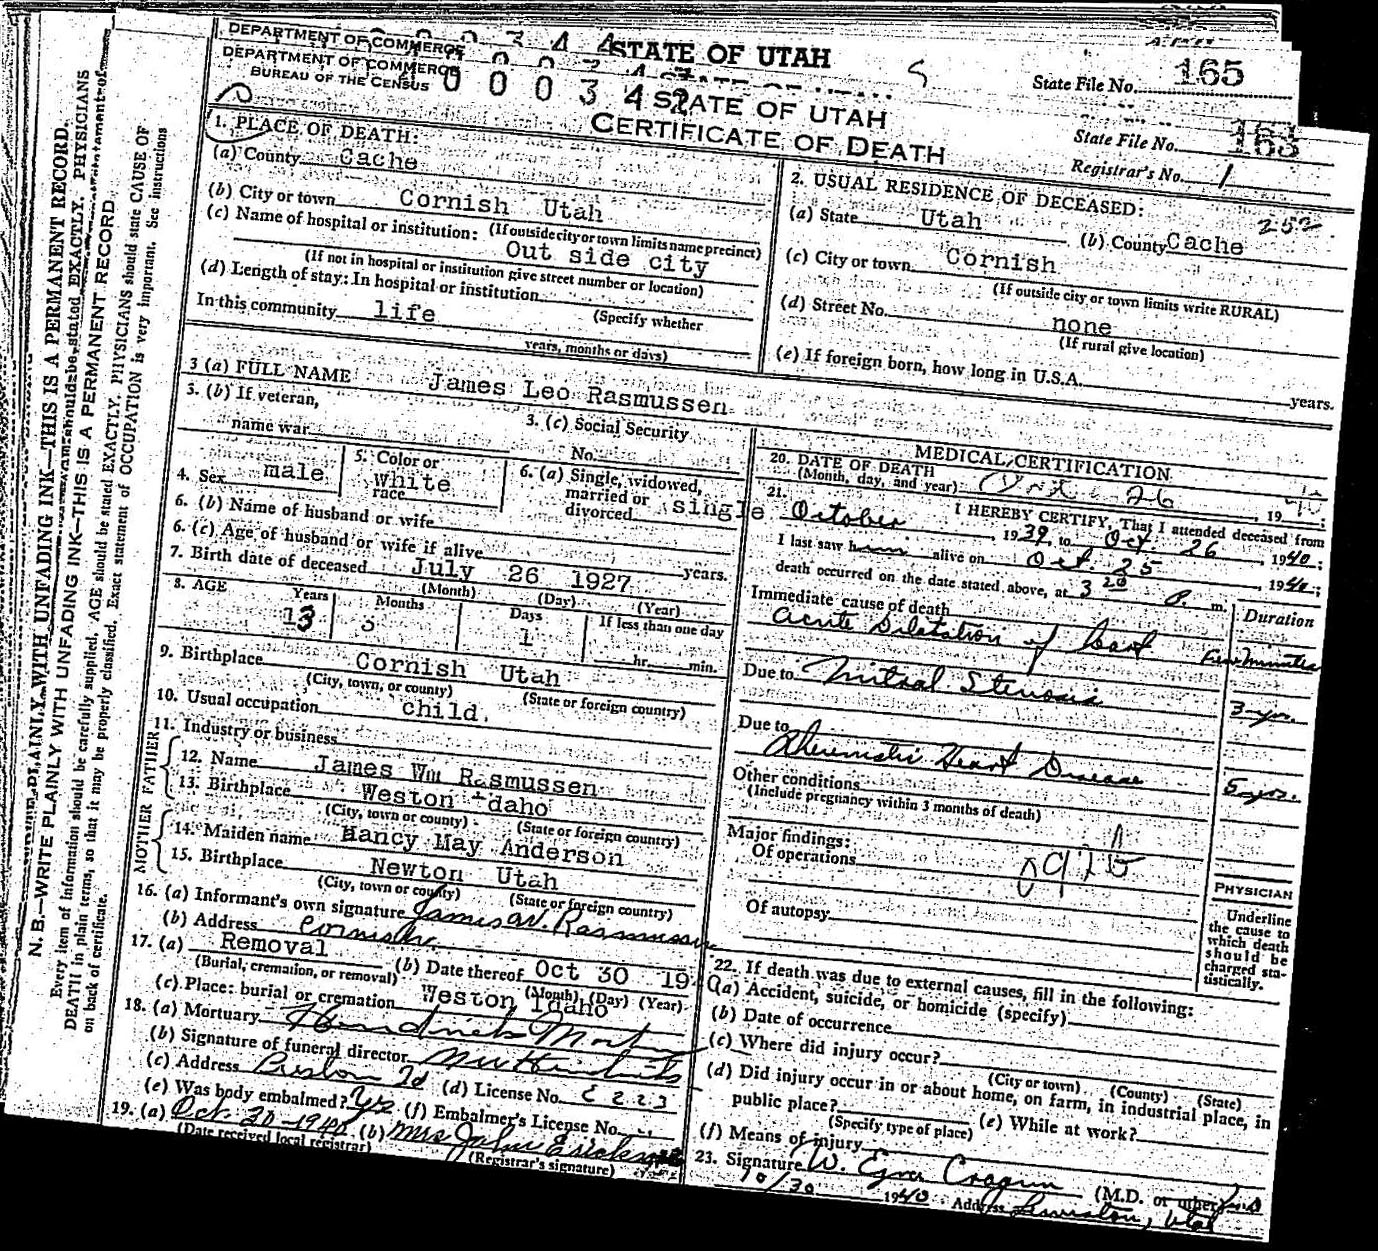 DEPARTMENT OF COMMERCE
STATE OF UTAH
State File No. 165
DEPARTMENT OF COMMERCE
BUREAU OF THE CENSUS
STATE OF UTAH
CERTIFICATE OF DEATH
State File No. 163
Registrar's No. 1
1. PLACE OF DEATH:
(a) County Cache
(b) City or town Cornish Utah
(If outside city or town limits name precinct)
(c) Name of hospital or institution:
Out side city
(If not in hospital or institution give street number or location)
(d) Length of stay: In hospital or institution
(Specify whether
In this community life
years, months or days)
2. USUAL RESIDENCE OF DECEASED:
252
(a) State Utah (b) County Cache
(c) City or town Cornish
(If outside city or town limits write RURAL)
(d) Street No. none
(If rural give location)
(e) If foreign born, how long in U.S.A. years.
3 (a) FULL NAME James Leo Rasmussen
3. (b) If veteran,
name war
3. (c) Social Security
No.
4. Sex male
5. Color or
race White
6. (a) Single, widowed,
married or
divorced single
6. (b) Name of husband or wife
6. (c) Age of husband or wife if alive years.
7. Birth date of deceased July 26 1927
(Month) (Day) (Year)
8. AGE Years Months Days If less than one day
13 3 1 hr. min.
9. Birthplace Cornish Utah
(City, town, or county) (State or foreign country)
10. Usual occupation child.
11. Industry or business
FATHER
12. Name James Wm Rasmussen
13. Birthplace Weston Idaho
(City, town, or county) (State or foreign country)
MOTHER
14. Maiden name Hancy May Anderson
15. Birthplace Newton Utah
(City, town or county) (State or foreign country)
16. (a) Informant's own signature James W. Rasmussen
(b) Address Cornish
17. (a) Removal (b) Date thereof Oct 30 19
(Burial, cremation, or removal) (Month) (Day) (Year)
(c) Place: burial or cremation Weston Idaho
18. (a) Mortuary Hendricks
(b) Signature of funeral director
(c) Address Preston Id (d) License No. E 223
(e) Was body embalmed? Yes (f) Embalmer's License No.
19. (a) Oct. 30-1940 (b) Mrs John
(Date received local registrar) (Registrar's signature)
MEDICAL CERTIFICATION
20. DATE OF DEATH
(Month, day, and year) Oct 26 1940;
21. I HEREBY CERTIFY, That I attended deceased from
October 1939, to Oct. 26 1940;
I last saw him alive on Oct. 25 1940;
death occurred on the date stated above, at 3 20 P. m.
Immediate cause of death Duration
Acute Dilatation of heart Few minutes
Due to Mitral Stenosis 3 yrs.
Due to
Rheumatic Heart Disease 5 yrs.
Other conditions
(Include pregnancy within 3 months of death)
Major findings:
Of operations
Of autopsy
PHYSICIAN
Underline
the cause to
which death
should be
charged sta-
tistically.
22. If death was due to external causes, fill in the following:
(a) Accident, suicide, or homicide (specify)
(b) Date of occurrence
(c) Where did injury occur?
(City or town) (County) (State)
(d) Did injury occur in or about home, on farm, in industrial place, in
public place? (e) While at work?
(Specify type of place)
(f) Means of injury
23. Signature W. Cragun (M.D. or other)
10/30 1940 Address Lewiston, Utah
N. B.—WRITE PLAINLY WITH UNFADING INK—THIS IS A PERMANENT RECORD.
Every item of information should be carefully supplied. AGE should be stated EXACTLY. PHYSICIANS should state CAUSE OF
DEATH in plain terms, so that it may be properly classified. Exact statement of OCCUPATION is very important. See instructions
on back of certificate.